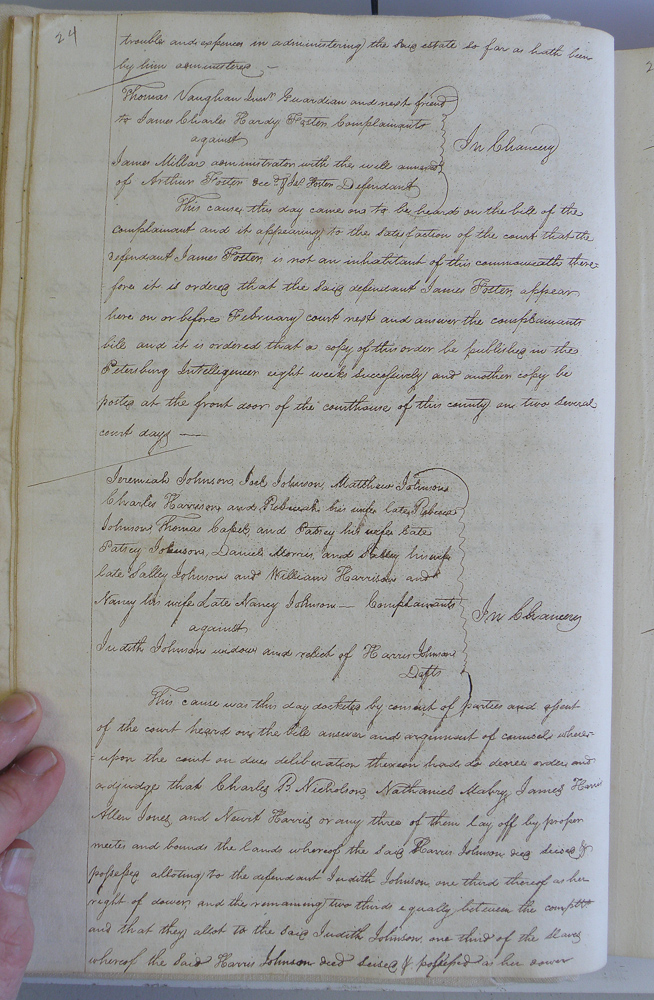 24
trouble and expences in administering the said estate so far as hath been
by him administered —
Thomas Vaughan Junr. Guardian and next friend
to James Charles Hardy Foster Complainants
against
In Chancery
James Millar administrator with the will annexed
of Arthur Foster decd. & Jas. Foster Defendants
This cause this day came on to be heard on the bill of the
complainant and it appearing to the satisfaction of the court that the
defendant James Foster is not an inhabitant of this commonwealth there-
fore it is ordered that the said defendant James Foster appear
here on or before February court next and answer the complainants
bill and it is ordered that a copy of this order be published in the
Petersburg Intelligencer eight weeks successively and another copy be
posted at the front door of the courthouse of this county on two several
court days —
Jeremiah Johnson, Joel Johnson, Matthew Johnson
Charles Harrison and Rebecah his wife late Rebecca
Johnson, Thomas and Patsey his wife late
Patsey Johnson, Daniel Morris and Salley his wife
late Salley Johnson and William Harrison and
Nancy his wife late Nancy Johnson — Complainants
against
In Chancery
Judith Johnson widow and relict of Harris Johnson
Defts
This cause was this day docketed by consent of parties and assent
of the court heard on the bill answer and argument of councils where-
upon the court on due deliberation thereon had do decree order and
adjudge that Charles B. Nicholson, Nathaniel Mabry, James Harris
Allen Jones, and Newit Harris or any three of them lay off by proper
meets and bounds the lands whereof the said Harris Johnson died seised &
possessed alloting to the defendant Judith Johnson one third thereof as her
right of dower and the remaining two thirds equally between the complts
and that they allot to the said Judith Johnson one third of the slaves
whereof the said Harris Johnson died seised & possessed as her dower